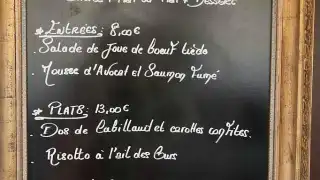 * ENTRÉES: 8,00€
. Salade de Joue de boeuf tiède
. Mousse d'Avocat et Saumon Fumé
* PLATS: 13,00€
. Dos de Cabillaud et carottes confites.
. Risotto à l'ail des Ours